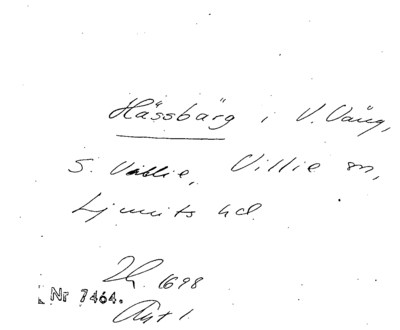 Hässbärg i V. Vång,
S. Villie, Villie sn,
Ljunits hd.
1698
Nr 7464.
Akt 1.